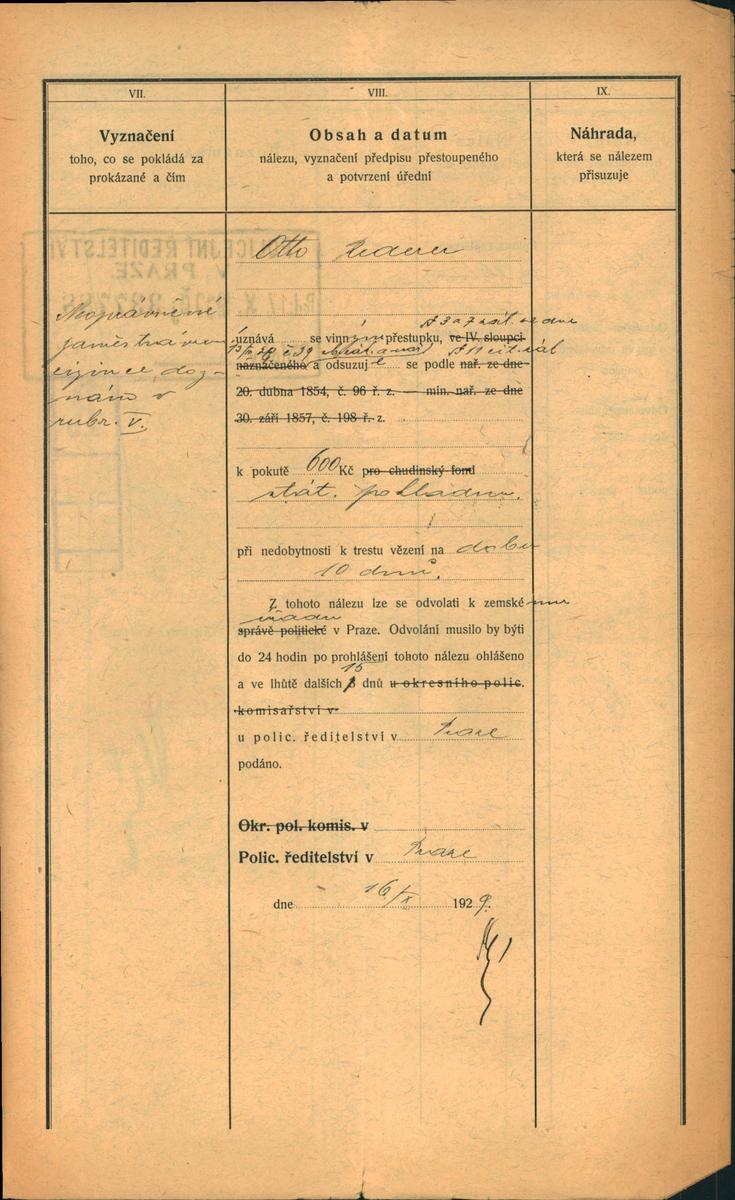 VII.
Vyznačení
toho, co se pokládá za
prokázané a čím
VIII.
Obsah a datum
nálezu, vyznačení předpisu přestoupeného
a potvrzení úřední
IX.
Náhrada,
která se nálezem
přisuzuje
Neoprávněné
zaměstnávání
cizince, doz-
náním v
rubr. V.
Otto Lederer
§ 3 a 7 zák. ze dne
uznává se vinným přestupku, ve IV. sloupci
13/III 28 č 39 § 11 cit. zák
naznačeného a odsuzuje se podle nař. ze dne
20. dubna 1854, č. 96 ř. z. — min. nař. ze dne
30. září 1857, č. 198 ř. z.
k pokutě 600 Kč pro chudinský fond
stát. pokladnu.
při nedobytnosti k trestu vězení na dobu
10 dnů.
Z tohoto nálezu lze se odvolati k zemskému
úřadu
správě politické v Praze. Odvolání musilo by býti
do 24 hodin po prohlášení tohoto nálezu ohlášeno
15
a ve lhůtě dalších 3 dnů u okresního polic.
komisařství v
u polic. ředitelství v Praze
podáno.
Okr. pol. komis. v
Polic. ředitelství v Praze
dne 16/X 1929.